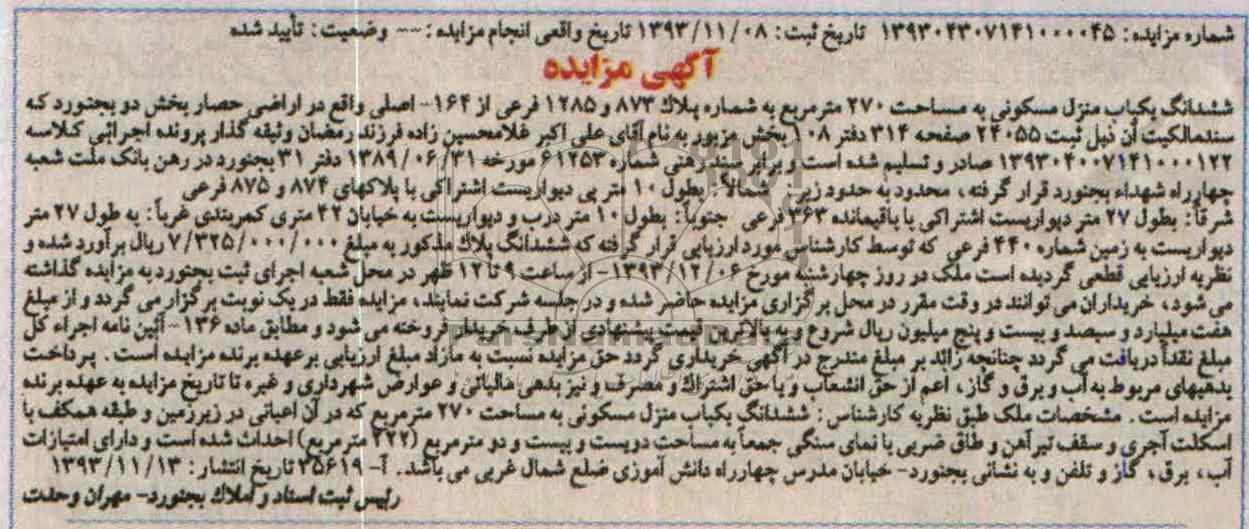 شماره مزایده: ۱۳۹۳۰۴۳۰۷۱۴۱۰۰۰۰۴۵ تاریخ ثبت: ۱۳۹۳/۱۱/۰۸ تاریخ واقعی انجام مزایده: -- وضعیت: تأیید شده
آگهی مزایده
ششدانگ یکباب منزل مسکونی به مساحت ۲۷۰ مترمربع به شماره پلاک ۸۷۳ و ۱۲۸۵ فرعی از ۱۶۴- اصلی واقع در اراضی حصار بخش دو بجنورد که
سندمالکیت آن ذیل ثبت ۲۴۰۵۵ صفحه ۳۱۴ دفتر ۱۰۸ بخش مزبور به نام آقای علی اکبر غلامحسین زاده فرزند رمضان وثیقه گذار پرونده اجرائی کلاسه
۱۳۹۳۰۴۰۰۷۱۴۱۰۰۰۱۲۲ صادر و تسلیم شده است و برابر سند رهنی شماره ۶۱۲۵۳ مورخه ۱۳۸۹/۰۶/۳۱ دفتر ۳۱ بجنورد در رهن بانک ملت شعبه
چهارراه شهداء بجنورد قرار گرفته، محدود به حدود زیر: شمالاً: بطول ۱۰ متر پی دیواریست اشتراکی با پلاکهای ۸۷۴ و ۸۷۵ فرعی
شرقاً: بطول ۲۷ متر دیواریست اشتراکی با باقیمانده ۳۶۳ فرعی جنوباً: بطول ۱۰ متر درب و دیواریست به خیابان ۴۲ متری کمربندی غرباً: به طول ۲۷ متر
دیواریست به زمین شماره ۴۴۰ فرعی که توسط کارشناس مورد ارزیابی قرار گرفته که ششدانگ پلاک مذکور به مبلغ ۷/۳۲۵/۰۰۰/۰۰۰ ریال برآورد شده و
نظریه ارزیابی قطعی گردیده است ملک در روز چهارشنبه مورخ ۱۳۹۳/۱۲/۰۶- از ساعت ۹ تا ۱۲ ظهر در محل شعبه اجرای ثبت بجنورد به مزایده گذاشته
می شود، خریداران می توانند در وقت مقرر در محل برگزاری مزایده حاضر شده و در جلسه شرکت نمایند، مزایده فقط در یک نوبت برگزار می گردد و از مبلغ
هفت میلیارد و سیصد و بیست و پنج میلیون ریال شروع و به بالاترین قیمت پیشنهادی از طرف خریدار فروخته می شود و مطابق ماده ۱۳۶- آئین نامه اجراء کل
مبلغ نقداً دریافت می گردد چنانچه زائد بر مبلغ مندرج در آگهی خریداری گردد حق مزایده نسبت به مازاد مبلغ ارزیابی برعهده برنده مزایده است. پرداخت
بدهیهای مربوط به آب و برق و گاز، اعم از حق انشعاب و یا حق اشتراک و مصرف و نیز بدهی مالیاتی و عوارض شهرداری و غیره تا تاریخ مزایده به عهده برنده
مزایده است. مشخصات ملک طبق نظریه کارشناس: ششدانگ یکباب منزل مسکونی به مساحت ۲۷۰ مترمربع که در آن اعیانی در زیرزمین و طبقه همکف با
اسکلت آجری و سقف تیرآهن و طاق ضربی با نمای سنگی جمعاً به مساحت دویست و بیست و دو مترمربع (۲۲۲ مترمربع) احداث شده است و دارای امتیازات
آب، برق، گاز و تلفن و به نشانی بجنورد- خیابان مدرس چهارراه دانش آموزی ضلع شمال غربی می باشد. آ- ۳۵۶۱۹ تاریخ انتشار: ۱۳۹۳/۱۱/۱۳
رئیس ثبت اسناد و املاک بجنورد- مهران وحدت